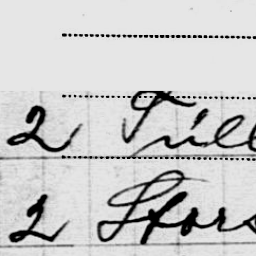 2 Tüll
2 Stors